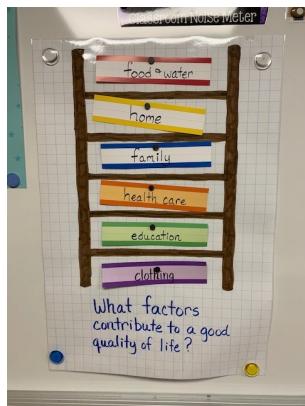 Classroom Noise Meter
food & water
home
family
health care
education
clothing
What factors
contribute to a good
quality of life?